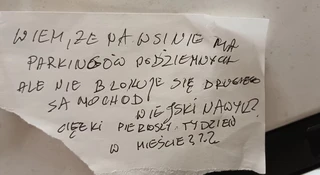 WIEM, ŻE NA WSI NIE MA
PARKINGÓW PODZIEMNYCH
ALE NIE BLOKUJE SIĘ DRUGIEGO
SAMOCHOD
WIEJSKI NAWYK?
CIĘŻKI PIERWSZY TYDZIEŃ
W MIEŚCIE???